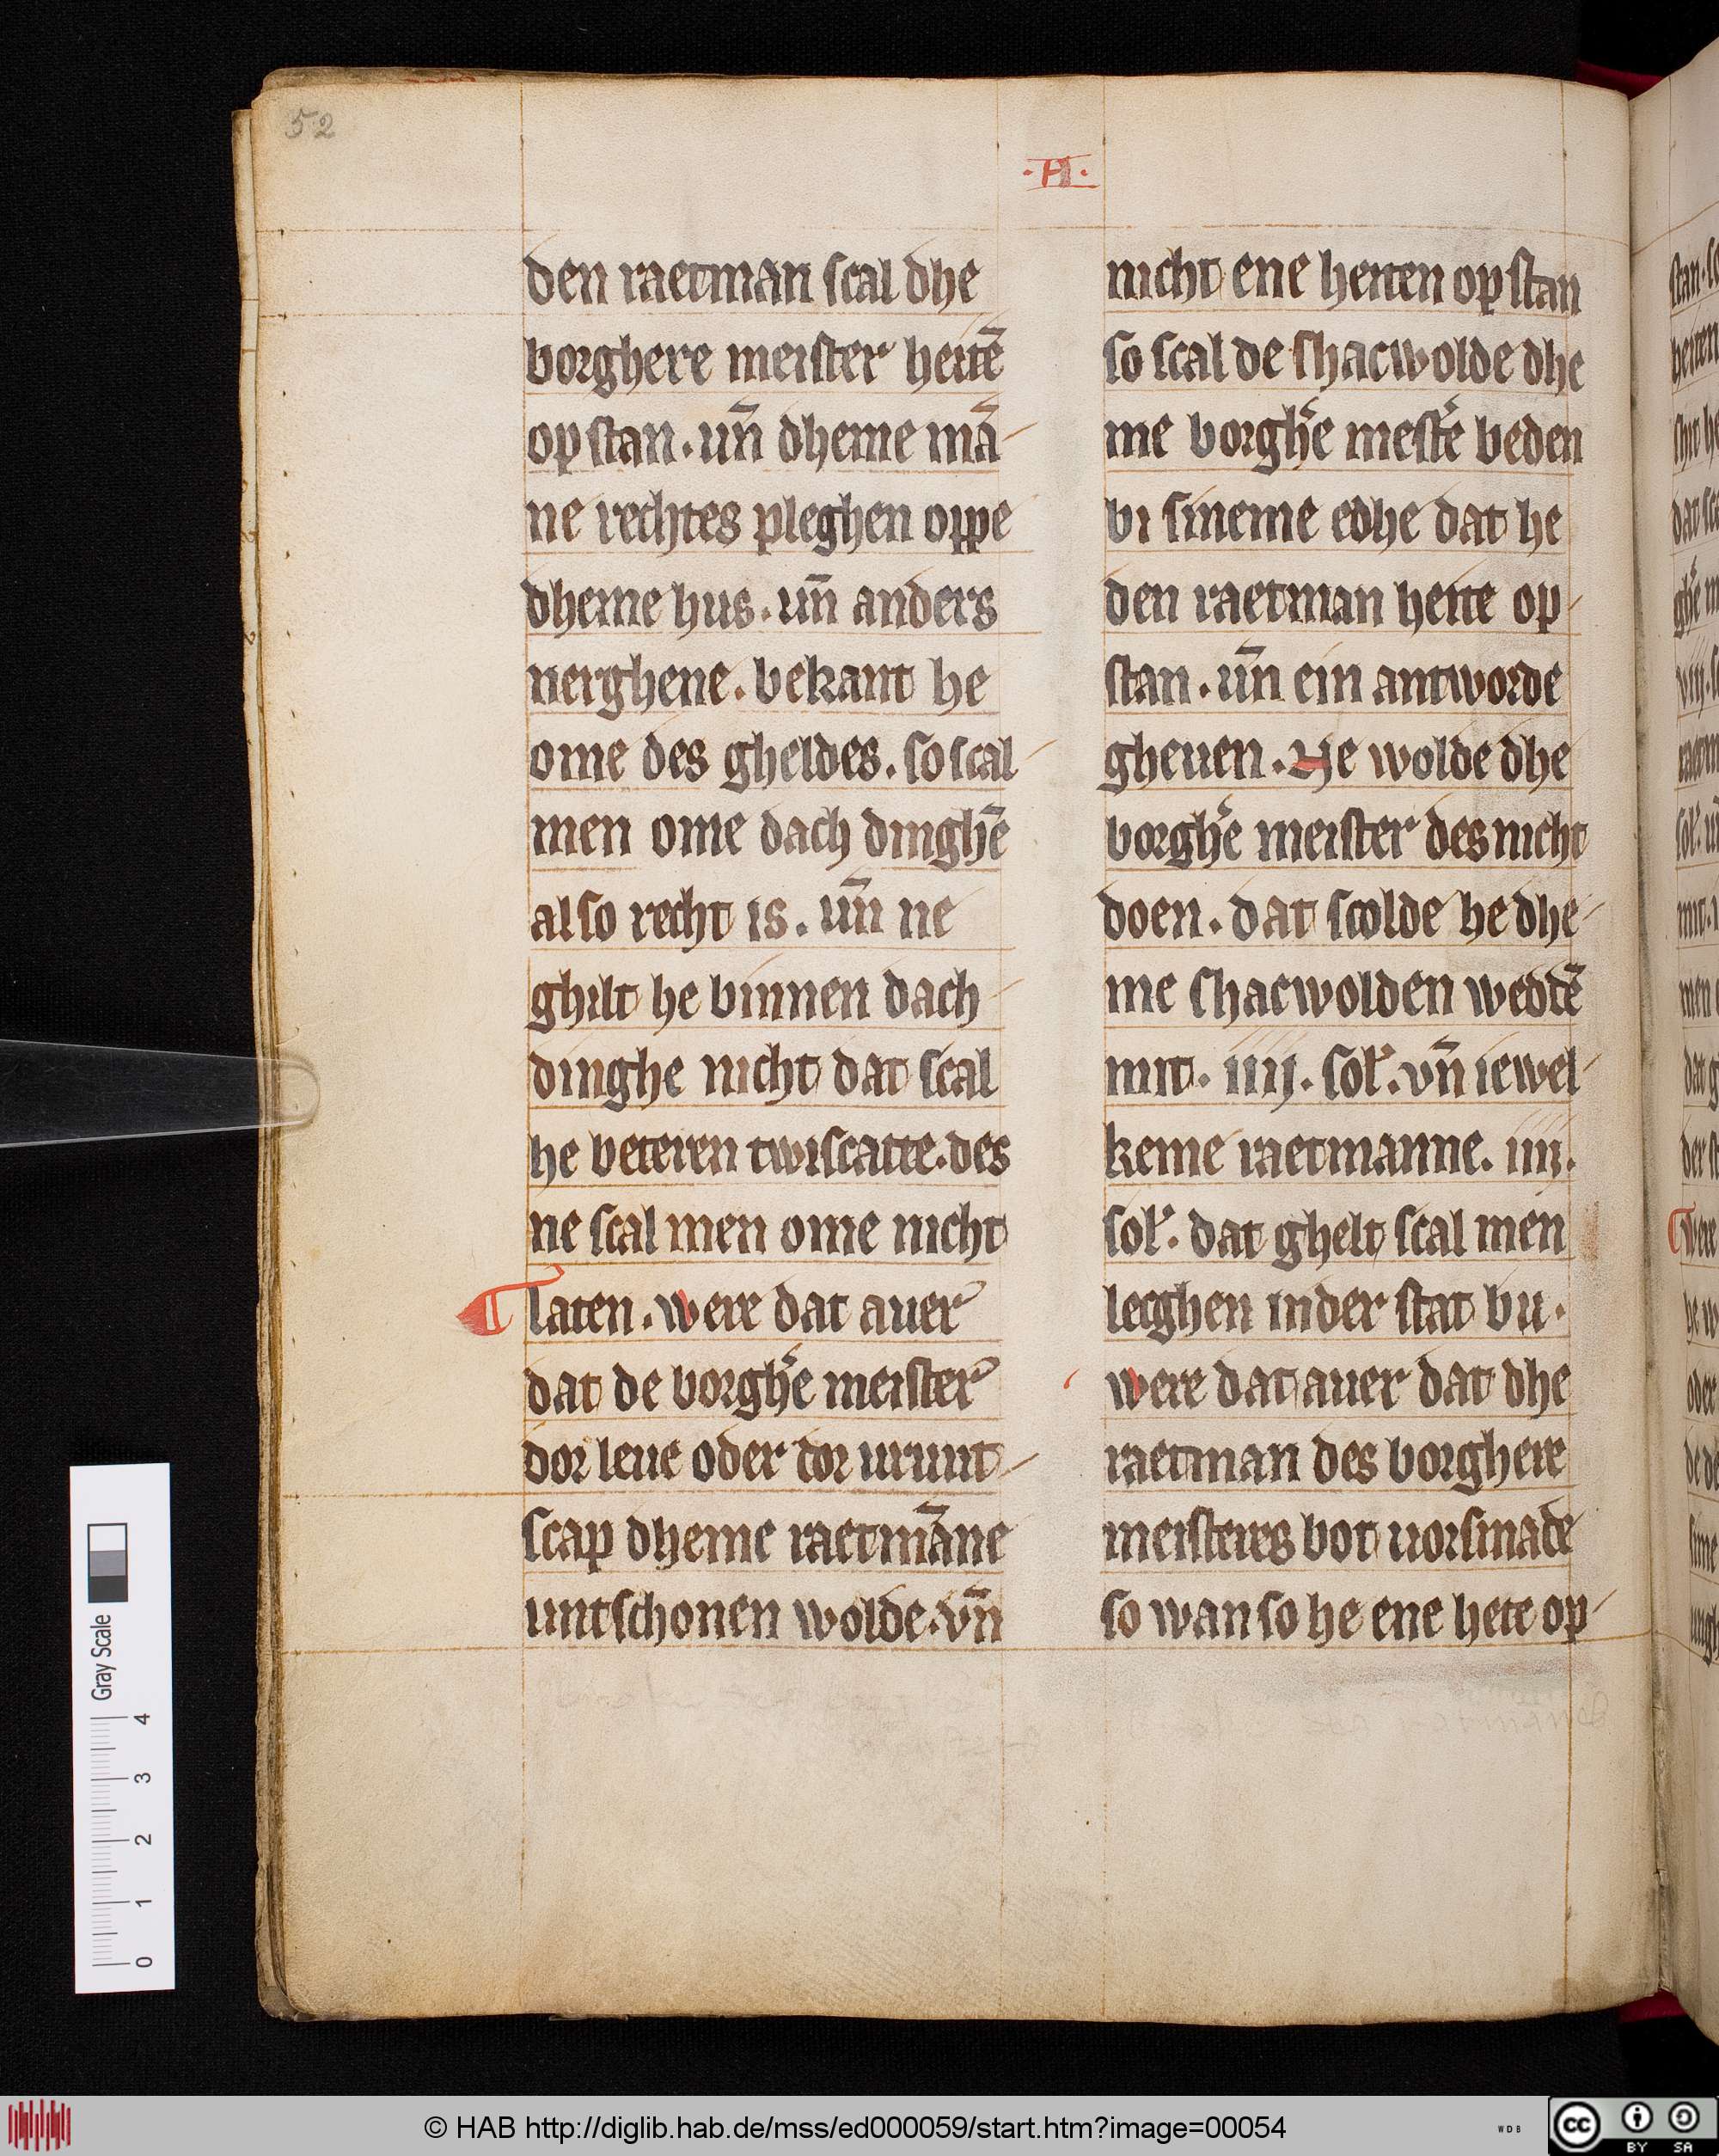 52
·H·
den raetman scal dhe
borghere meister heitē
op stan. un̄ dheme mā-
ne rechtes pleghen oppe
dheme hus. un̄ anders
nerghene. bekant he
ome des gheldes. so scal
men ome dach dinghē
also recht is. un̄ ne
ghilt he binnen dach
dinghe nicht dat scal
he beteren twiscatte. des
ne scal men ome nicht
laten. were dat auer
dat de borgh'e meister
dor leue oder dor urunt-
scap dheme raetmāne
untschonen wolde. vn̄
nicht ene heiten op stan
so scal de shacwolde dhe
me borgh'e mest'e beden
bi sineme edhe dat he
den raetman heite op-
stan. un̄ ein antworde
gheuen. He wolde dhe
borgh'e meister des nicht
doen. dat scolde he dhe-
me shacwolden weddē
mit. iiij. sol'. vn̄ iewel-
keme raetmanne. iiij.
sol'. dat ghelt scal men
lecghen in der stat bu.
were dat auer dat dhe
raetman des borghere
meisteres bot uorsmade
so wan so he ene hete op-
Gray Scale
4
3
2
1
0
© HAB http://diglib.hab.de/mss/ed000059/start.htm?image=00054
WDB
cc
BY SA